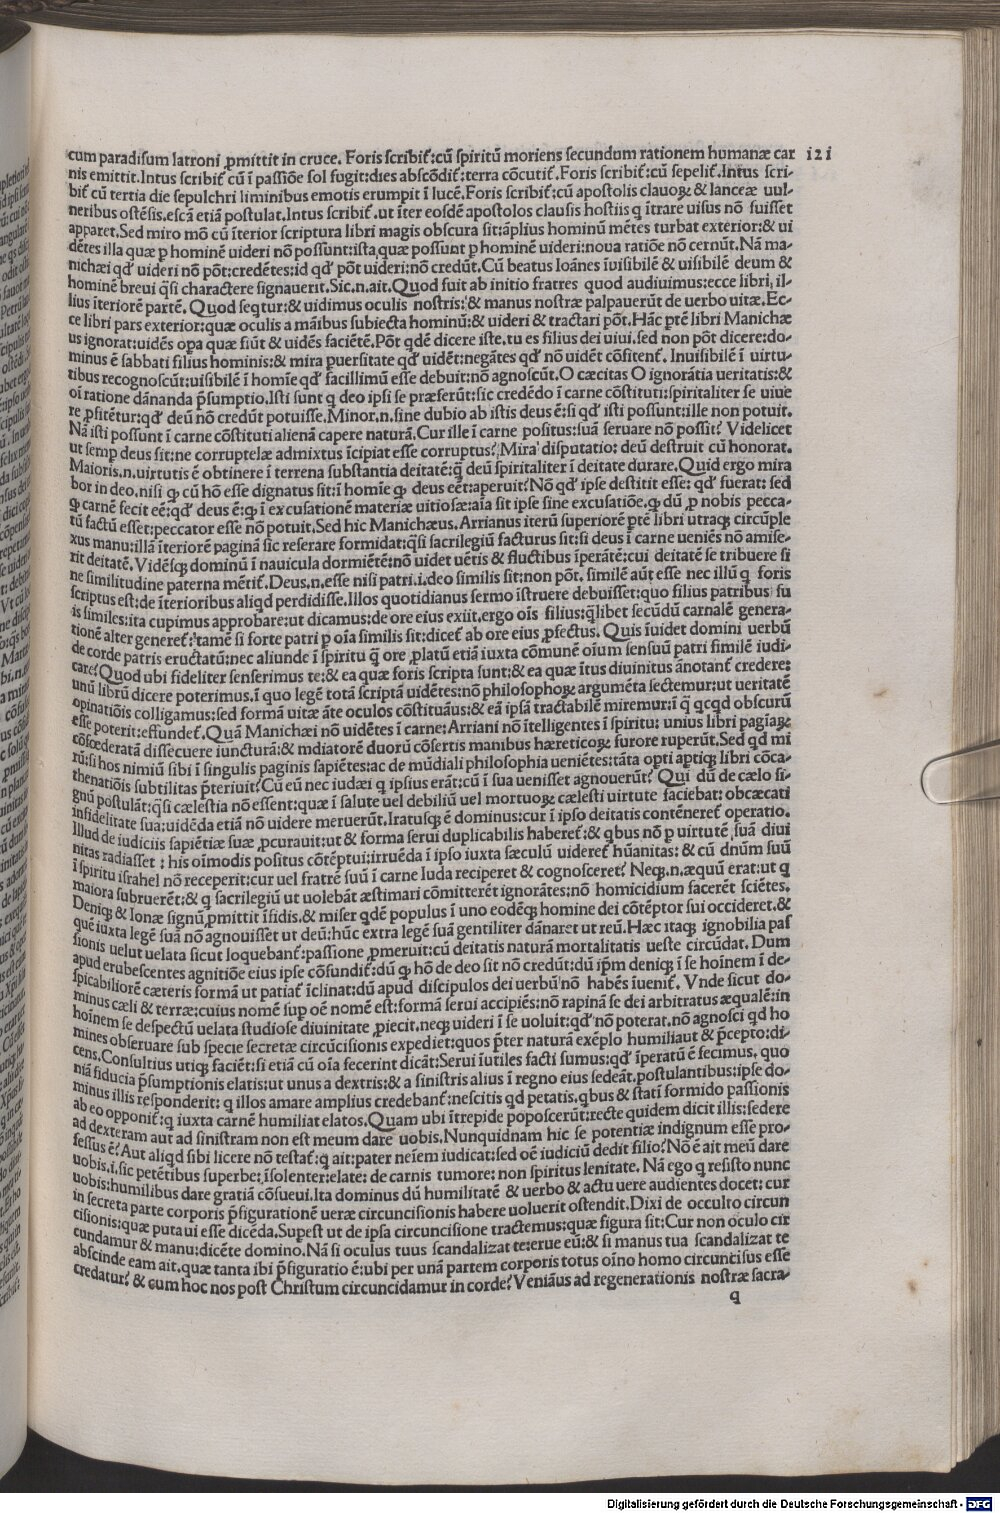 cum paradisum latroni ꝓmittit in cruce. Foris scribiť:cū spiritū moriens secundum rationem humanæ car 121
nis emittit. Intus scribiť cū ī passiōe sol fugit:dies abscōdiť:terra cōcutiť. Foris scribiť:cū sepeliť. Intus scri-
biť cū tertia die sepulchri liminibus emotis erumpit ī lucē. Foris scribiť:cū apostolis clauoꝝ & lanceæ uul-
neribus ostēsis.escā etiā postulat. Intus scribiť.ut īter eosdē apostolos clausis hostiis q ītrare uisus nō fuisset
apparet. Sed miro mō cū īterior scriptura libri magis obscura sit:āplius hominū mētes turbat exterior:& ui
dētes illa quæ p hominē uideri nō possunt:ista quæ possunt p hominē uideri:noua ratiōe nō cernūt. Nā ma-
nichæi qď uideri nō pōt:credētes:id qď pōt uideri:nō credūt. Cū beatus Ioānes īuisibilē & uisibilē deum &
hominē breui q̄si charactere signauerit. Sic.n.ait. Quod fuit ab initio fratres quod audiuimus:ecce libri, il-
lius īteriorē partē. Quod seqtur:& uidimus oculis nostris:& manus nostræ palpauerūt de uerbo uitæ. Ec-
ce libri pars exterior:quæ oculis a māibus subiecta hominū:& uideri & tractari pōt. Hāc ptē libri Manichæ
us ignorat:uidēs opa quæ fiūt & uidēs faciētē. Pōt qdē dicere iste.tu es filius dei uiui.sed non pōt dicere:do-
minus ē sabbati filius hominis:& mira puersitate qď uidēt:negātes qď nō uidēt cōfitenť. Inuisibilē ī uirtu-
tibus recognoscūt:uisibilē ī homīe qď facillimū esse debuit:nō agnoscūt. O cæcitas O ignorātia ueritatis:&
oī ratione dānanda p̄sumptio. Isti sunt q deo ipsi se præferūt:sic credēdo ī carne cōstituti:spiritaliter se uiue
re ꝓfitētur:qď deū nō credūt potuisse. Minor.n.sine dubio ab istis deus ē:si qď isti possunt:ille non potuit.
Nā isti possunt ī carne cōstituti alienā capere naturā. Cur ille ī carne positus:suā seruare nō possit? Videlicet
ut semp deus sit:ne corruptelæ admixtus īcipiat esse corruptus? Mira disputatio: deū destruit cū honorat.
Maioris.n.uirtutis ē obtinere ī terrena substantia deitatē:q̄ deū spiritaliter ī deitate durare. Quid ergo mira
bor in deo.nisi ꝙ cū hō esse dignatus sit:ī homīe ꝙ deus eēt:aperuit? Nō qď ipse destitit esse: qď fuerat: sed
ꝙ carnē fecit eē:qď deus ē:ꝙ ī excusationē materiæ uitiosæ:aīa sit ipse sine excusatiōe.ꝙ dū ꝓ nobis pecca-
tū factū esset:peccator esse nō potuit. Sed hic Manichæus. Arrianus iterū superiorē ptē libri utraqꝫ circūple
xus manu:illā īteriorē paginā sic reserare formidat:q̄si sacrilegiū facturus sit:si deus ī carne ueniēs nō amise-
rit deitatē. Vidēsqꝫ dominū ī nauicula dormiētē:nō uidet uētis & fluctibus īperātē:cui deitatē se tribuere si
ne similitudine paterna mētiť. Deus.n.esse nisi patri.i.deo similis sit:non pōt. similē aūt esse nec illū q foris
scriptus est:de īterioribus aliqd perdidisse. Illos quotidianus sermo īstruere debuisset:quo filius patribus su
is similes:ita cupimus approbare:ut dicamus:de ore eius exiit.ergo oīs filius:q̄libet secūdū carnalē genera-
tionē alter genereť:tamē si forte patri p oīa similis sit:diceť ab ore eius ꝓfectus. Quis īuidet domini uerbū
de corde patris eructatū:nec aliunde ī spiritu q̄ ore ꝓlatū etiā iuxta cōmunē oium sensuū patri similē iudi-
care? Quod ubi fideliter senserimus te:& ea quæ foris scripta sunt:& ea quæ ītus diuinitus ānotanť credere:
unū librū dicere poterimus.ī quo legē totā scriptā uidētes:nō philosophoꝝ argumēta sectemur:ut ueritatē
opinatiōis colligamus:sed formā uitæ āte oculos cōstituāus:& eā īpsā tractabilē miremur:ī q̄ qcqd obscurū
esse poterit:effundeť. Quā Manichæi nō uidētes ī carne:Arriani nō ītelligentes ī spiritu: unius libri pagīaꝝ
cōfœderatā dissecuere iuncturā:& mdiatorē duorū cōsertis manibus hæreticoꝝ furore ruperūt. Sed qd mi
rū:si hos nimiū sibi ī singulis paginis sapiētes:ac de mūdiali philosophia ueniētes:tāta opti aptiqꝫ libri cōca-
thenatiōis subtilitas p̄teriuit? Cū eū nec iudæi q ipsius erāt:cū ī sua uenisset agnouerūt? Qui dū de cælo si-
gnū postulāt:q̄si cælestia nō essent:quæ ī salute uel debiliū uel mortuoꝝ cælesti uirtute faciebat: obcæcati
infidelitate sua:uidēda etiā nō uidere meruerūt. Iratusqꝫ ē dominus:cur ī ipso deitatis contēnereť operatio.
Illud de iudiciis sapiētiæ suæ ꝓcurauit:ut & forma serui duplicabilis habereť:& qbus nō p uirtutē suā diui
nitas radiasset : his oīmodis positus cōtēptui:irruēda ī ipso iuxta sæculū uidereť hūanitas: & cū dnūm suū
ī spiritu israhel nō receperit:cur uel fratrē suū ī carne Iuda reciperet & cognosceret? Neqꝫ.n.æquū erat:ut q
maiora subruerēt:& q sacrilegiū ut uolebāt æstimari cōmitterēt ignorātes:nō homicidium facerēt sciētes.
Deniqꝫ & Ionæ signū ꝓmittit īfidis.& miser qdē populus ī uno eodēqꝫ homine dei cōtēptor sui occideret.&
quē iuxta legē suā nō agnouisset ut deū:hūc extra legē suā gentiliter dānaret ut reū. Hæc itaqꝫ ignobilia pas
sionis uelut uelata sicut loquebanť:passione ꝓmeruit:cū deitatis naturā mortalitatis ueste circūdat. Dum
apud erubescentes agnitiōe eius ipse cōfundiť:dū ꝙ hō de deo sit nō credūt:dū ip̄m deniqꝫ ī se hoīem ī de-
spicabiliorē cæteris formā ut patiať īclinat:dū apud discipulos dei uerbū nō habēs īueniť. Vnde sicut do-
minus cæli & terræ:cuius nomē sup oē nomē est:formā serui accipiēs:nō rapinā se dei arbitratus æqualē:in
hoīnem se despectū uelata studiose diuinitate ꝓiecit.neqꝫ uideri ī se uoluit:qď nō poterat.nō agnosci qd ho
mines obseruare sub specie secretæ circūcisionis expediet:quos p̄ter naturā exēplo humiliaut & p̄cepto:di-
cens. Consultius utiqꝫ faciēt:si etiā cū oīa fecerint dicāt:Serui īutiles facti sumus:qď īperatū ē fecimus. quo
niā fiducia p̄sumptionis elatis:ut unus a dextris:& a sinistris alius ī regno eius sedeāt.postulantibus:ipse do-
minus illis respōnderit: q illos amare amplius credebanť:nescitis qd petatis.qbus & statī formido passionis
ab eo opponiť:q iuxta carnē humiliat elatos. Quam ubi ītrepide poposcerūt:recte quidem dicit illis:sedere
ad dexteram aut ad sinistram non est meum dare uobis. Nunquidnam hic se potentiæ indignum esse pro-
fessus ē? Aut aliqd sibi licere nō testať:q ait:pater neīem iudicat:sed oē iudiciū dedit filio? Nō ē ait meū dare
uobis.i.sic petētibus superbe:īsolenter:elate: de carnis tumore: non spiritus lenitate. Nā ego q resisto nunc
uobis:humilibus dare gratiā cōsueui. Ita dominus dū humilitatē & uerbo & actu uere audientes docet: cur
in secreta parte corporis p̄figurationē ueræ circuncisionis habere uoluerit ostendit. Dixi de occulto circun
cisionis:quæ putaui esse dicēda. Supest ut de ipsa circuncisione tractemus:quæ figura sit: Cur non oculo cir
cundamur & manu:dicēte domino. Nā si oculus tuus scandalizat te:erue eū:& si manus tua scandalizat te
abscinde eam ait.quæ tanta ibi p̄figuratio ē:ubi per unā partem corporis totus oīno homo circuncisus esse
credatur? & cum hoc nos post Christum circuncidamur in corde? Veniāus ad regenerationis nostræ sacra-
q
Digitalisierung gefördert durch die Deutsche Forschungsgemeinschaft - DFG